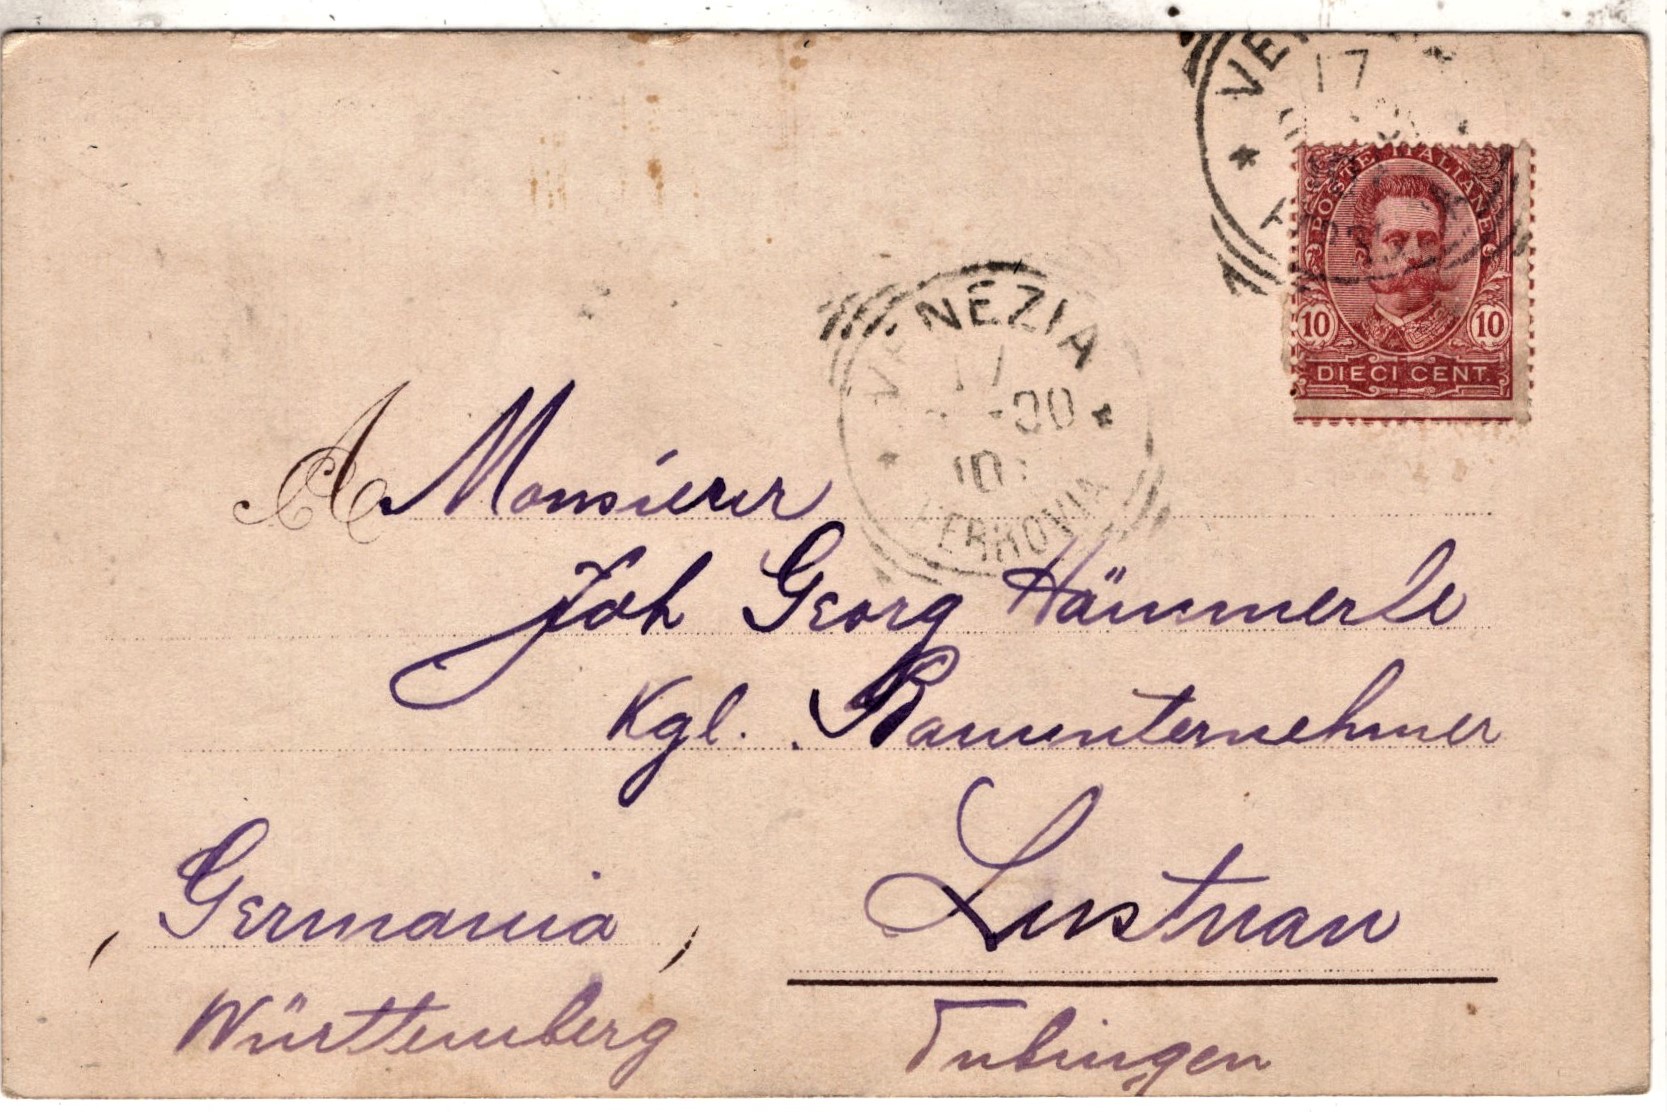 VE
17
POSTE ITALIANE
10 10
DIECI CENT.
VENEZIA
17
-00
10
FERROVIA
A Monsieur
Joh Georg Hämmerle
Kgl. Bauunternehmer
Lustnau
Germania
Württemberg
Tubingen